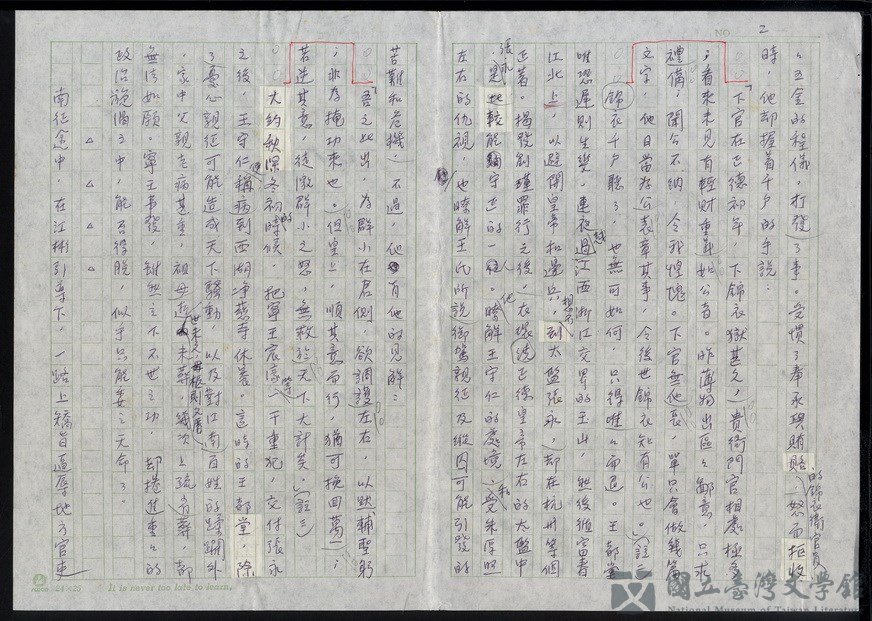 NO. 2
五金的程儀,打發了事。受慣了奉承與賄賂的錦衣衛官員,一怒而拒收
時,他却握着千戶的手說:
「下官在正德初年,下錦衣獄甚久,貴衙門官相處極多
,看來未見有輕財重義如公者。昨薄物出區區鄙意,只求
禮備,聞公不納,令我惶愧。下官無他長,單只會做幾篇
文字,他日當為公表章其事,令後世錦衣知有公也。」(註二
錦衣千戶聽了,也無可如何,只得唯唯而退。王都堂
唯恐遲則生變,連夜越過江西浙江交界的玉山,然後維富春
江北上,以避開皇帝和邊兵,想不到太監張永,却在杭州等個
正著。揭發劉瑾罪行之後,張永在環繞正德皇帝左右的太監中
是比較能守正的一個人。他瞭解王守仁的處境,受朱厚照
左右的仇視,也瞭解王氏所說御駕親征及縱囚可能引發的
苦難和危機,不過,他有他的見解:
「吾之此出,為群小在君側,欲調護左右,以默輔聖躬
,非為掩功來也。但皇上,順其意而行,猶可挽回萬一;
若逆其意,徒激群小之怒,無救於天下大計矣。」(註三
大約秋深冬初的時候,把寧王宸濠等一干重犯,交付張永
之後,王守仁便稱病到西湖淨慈寺休養。這時的王都堂,除
了憂心親征可能造成天下騷動,以及對江南百姓的蹂躪外
,家中父親老病甚重,祖母逝世未葬,幾次上疏省葬,都
無法如願。寧王事發,雖然立下不世之功,却捲進重重的
政治漩渦之中,能否得脫,似乎只能委之天命了。
△ △ △ △
南征途中,在江彬引導下,一路上矯旨逼辱地方官吏
24×25
It is never too late to learn.
國立臺灣文學館
National Museum of Taiwan Literature